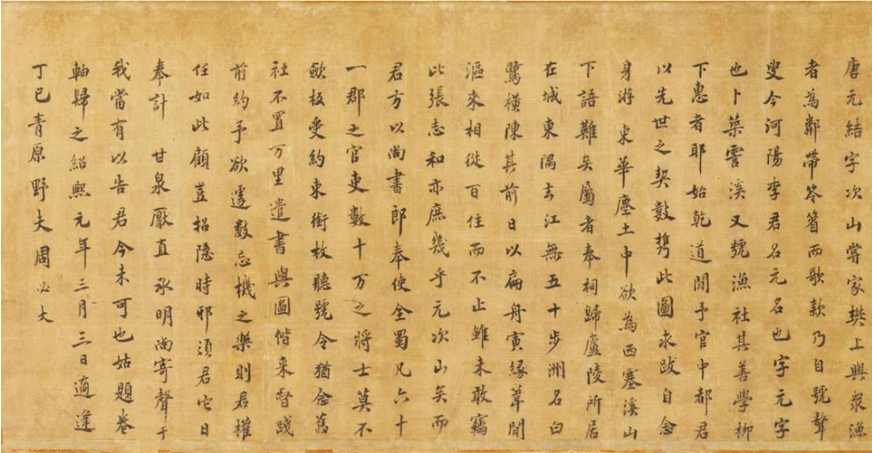 唐元結字次山嘗家樊上與眾漁
者為鄰帶笭箵而歌欸乃自號聱
叟今河陽李君名元名也字元字
也卜築霅溪又號漁社其善學柳
下惠者耶始乾道間予官中都君
以先世之契數携此圖求跋自念
身游東華塵土中欲為西塞溪山
下語難矣屬者奉祠歸廬陵所居
在城東隅去江無五十步洲名白
鷺橫陳其前日以扁舟寅緣葦間
漚來相從百住而不止雖未敢竊
比張志和亦庶幾乎元次山矣而
君方以尚書郎奉使全蜀凡六十
一郡之官吏數十万之將士莫不
歛板受約束銜枚聽號令猶念舊
社不置万里遣書與圖偕來督踐
前約予欲遽數忘機之樂則君權
任如此顧豈招隐時邪須君它日
奉計甘泉厭直承明尚寄聲于
我當有以告君今未可也姑題卷
軸歸之紹熙元年三月三日適逢
丁巳青原野夫周必大